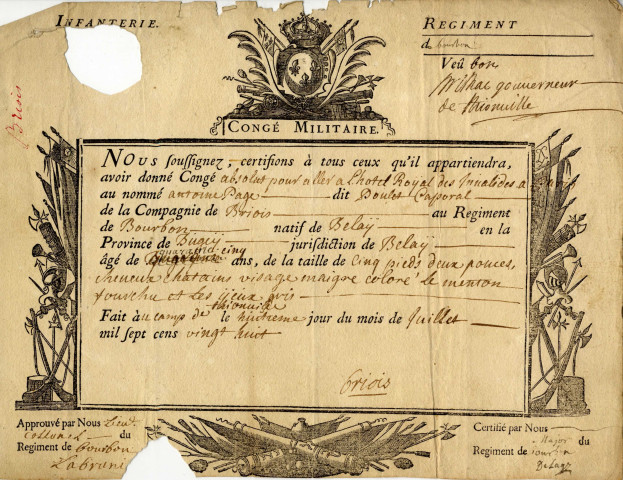 INFANTERIE.
REGIMENT
de bourbon
Veû bon
gouverneur
de thionville
Briois
CONGÉ MILITAIRE.
NOUS soussignez certifions à tous ceux qu'il appartiendra,
avoir donné Congé absolut pour aller a L'hotel Royal des Inualides a
au nommé antoine Page dit Poulet Caporal
de la Compagnie de Briois au Regiment
de Bourbon natif de Belaÿ en la
Province de Bugeÿ jurisdiction de Belaÿ
quarante cinq
âgé de ans, de la taille de Cinq pieds deux pouces,
cheueux chatains visage maigre coloré Le menton
fourchu et Les ÿeux gris
thionville
Fait au camp de le huitieme jour du mois de Juillet
mil sept cens vingt huit
briois
Approuvé par Nous Lieut.
Collonel du
Regiment de bourbon
Certifié par Nous
Major du
Regiment de bourbon